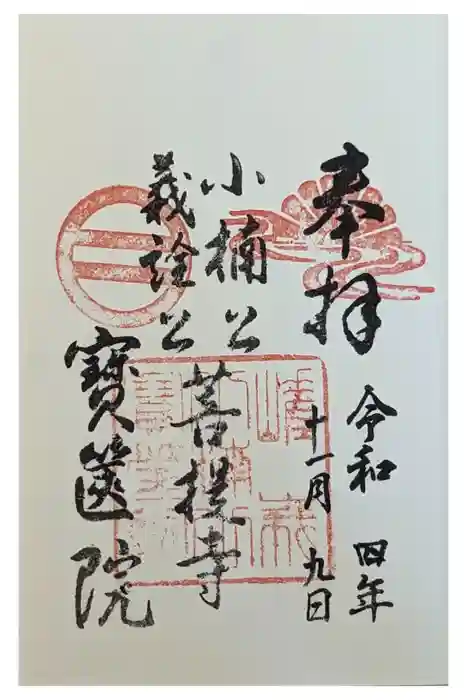 奉拝
令和四年
十一月九日
小楠公
義詮公
菩提寺
寶篋院